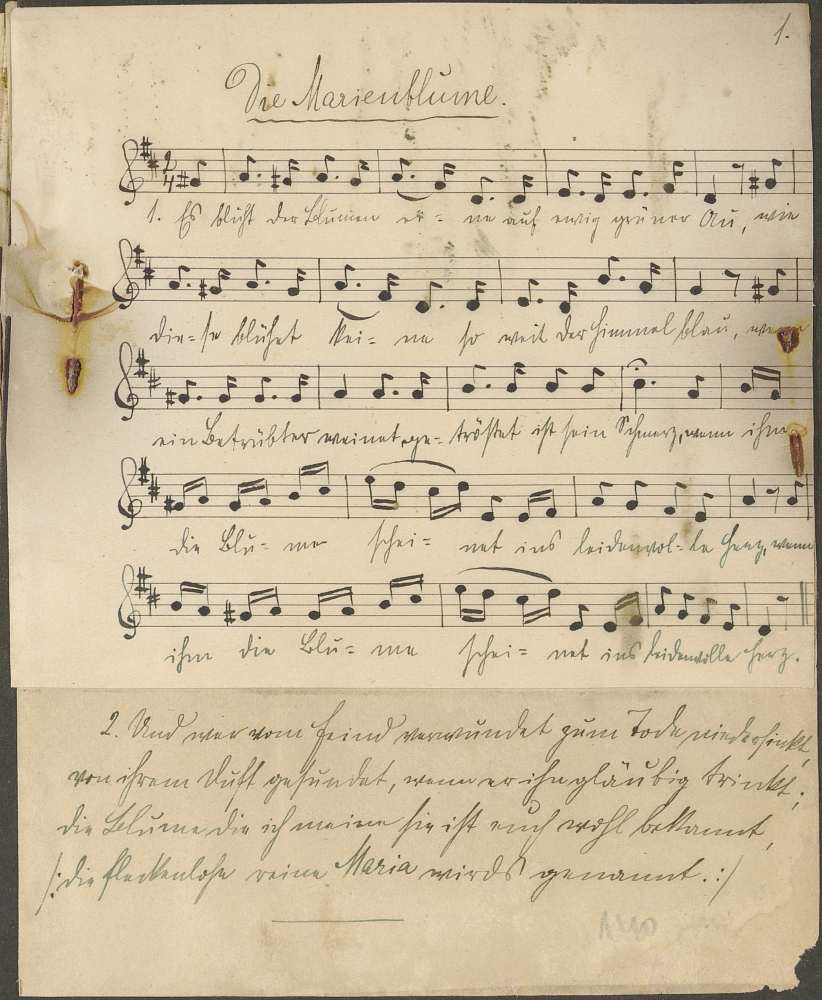 1.
Die Marienblume.
2/4
1. Es blüht der Blumen ei- ne auf ewig grüner Au, wie
die-se blühet kei- ne so weit der Himmel blau, wenn
ein Betrübter weinet, ge- tröstet ist sein Schmerz, wenn ihm
die Blu- me schei- net ins leidenvol- le Herz, wenn
ihm die Blu- me schei- net ins leidenvolle Herz.
2. Und wer vom Feind verwundet zum Tode niedersinkt,
von ihrem Duft gesundet, wenn er ihn gläubig trinkt;
die Blume die ich meine sie ist euch wohl bekannt,
/: die fleckenlose reine Maria wirds genannt. :/